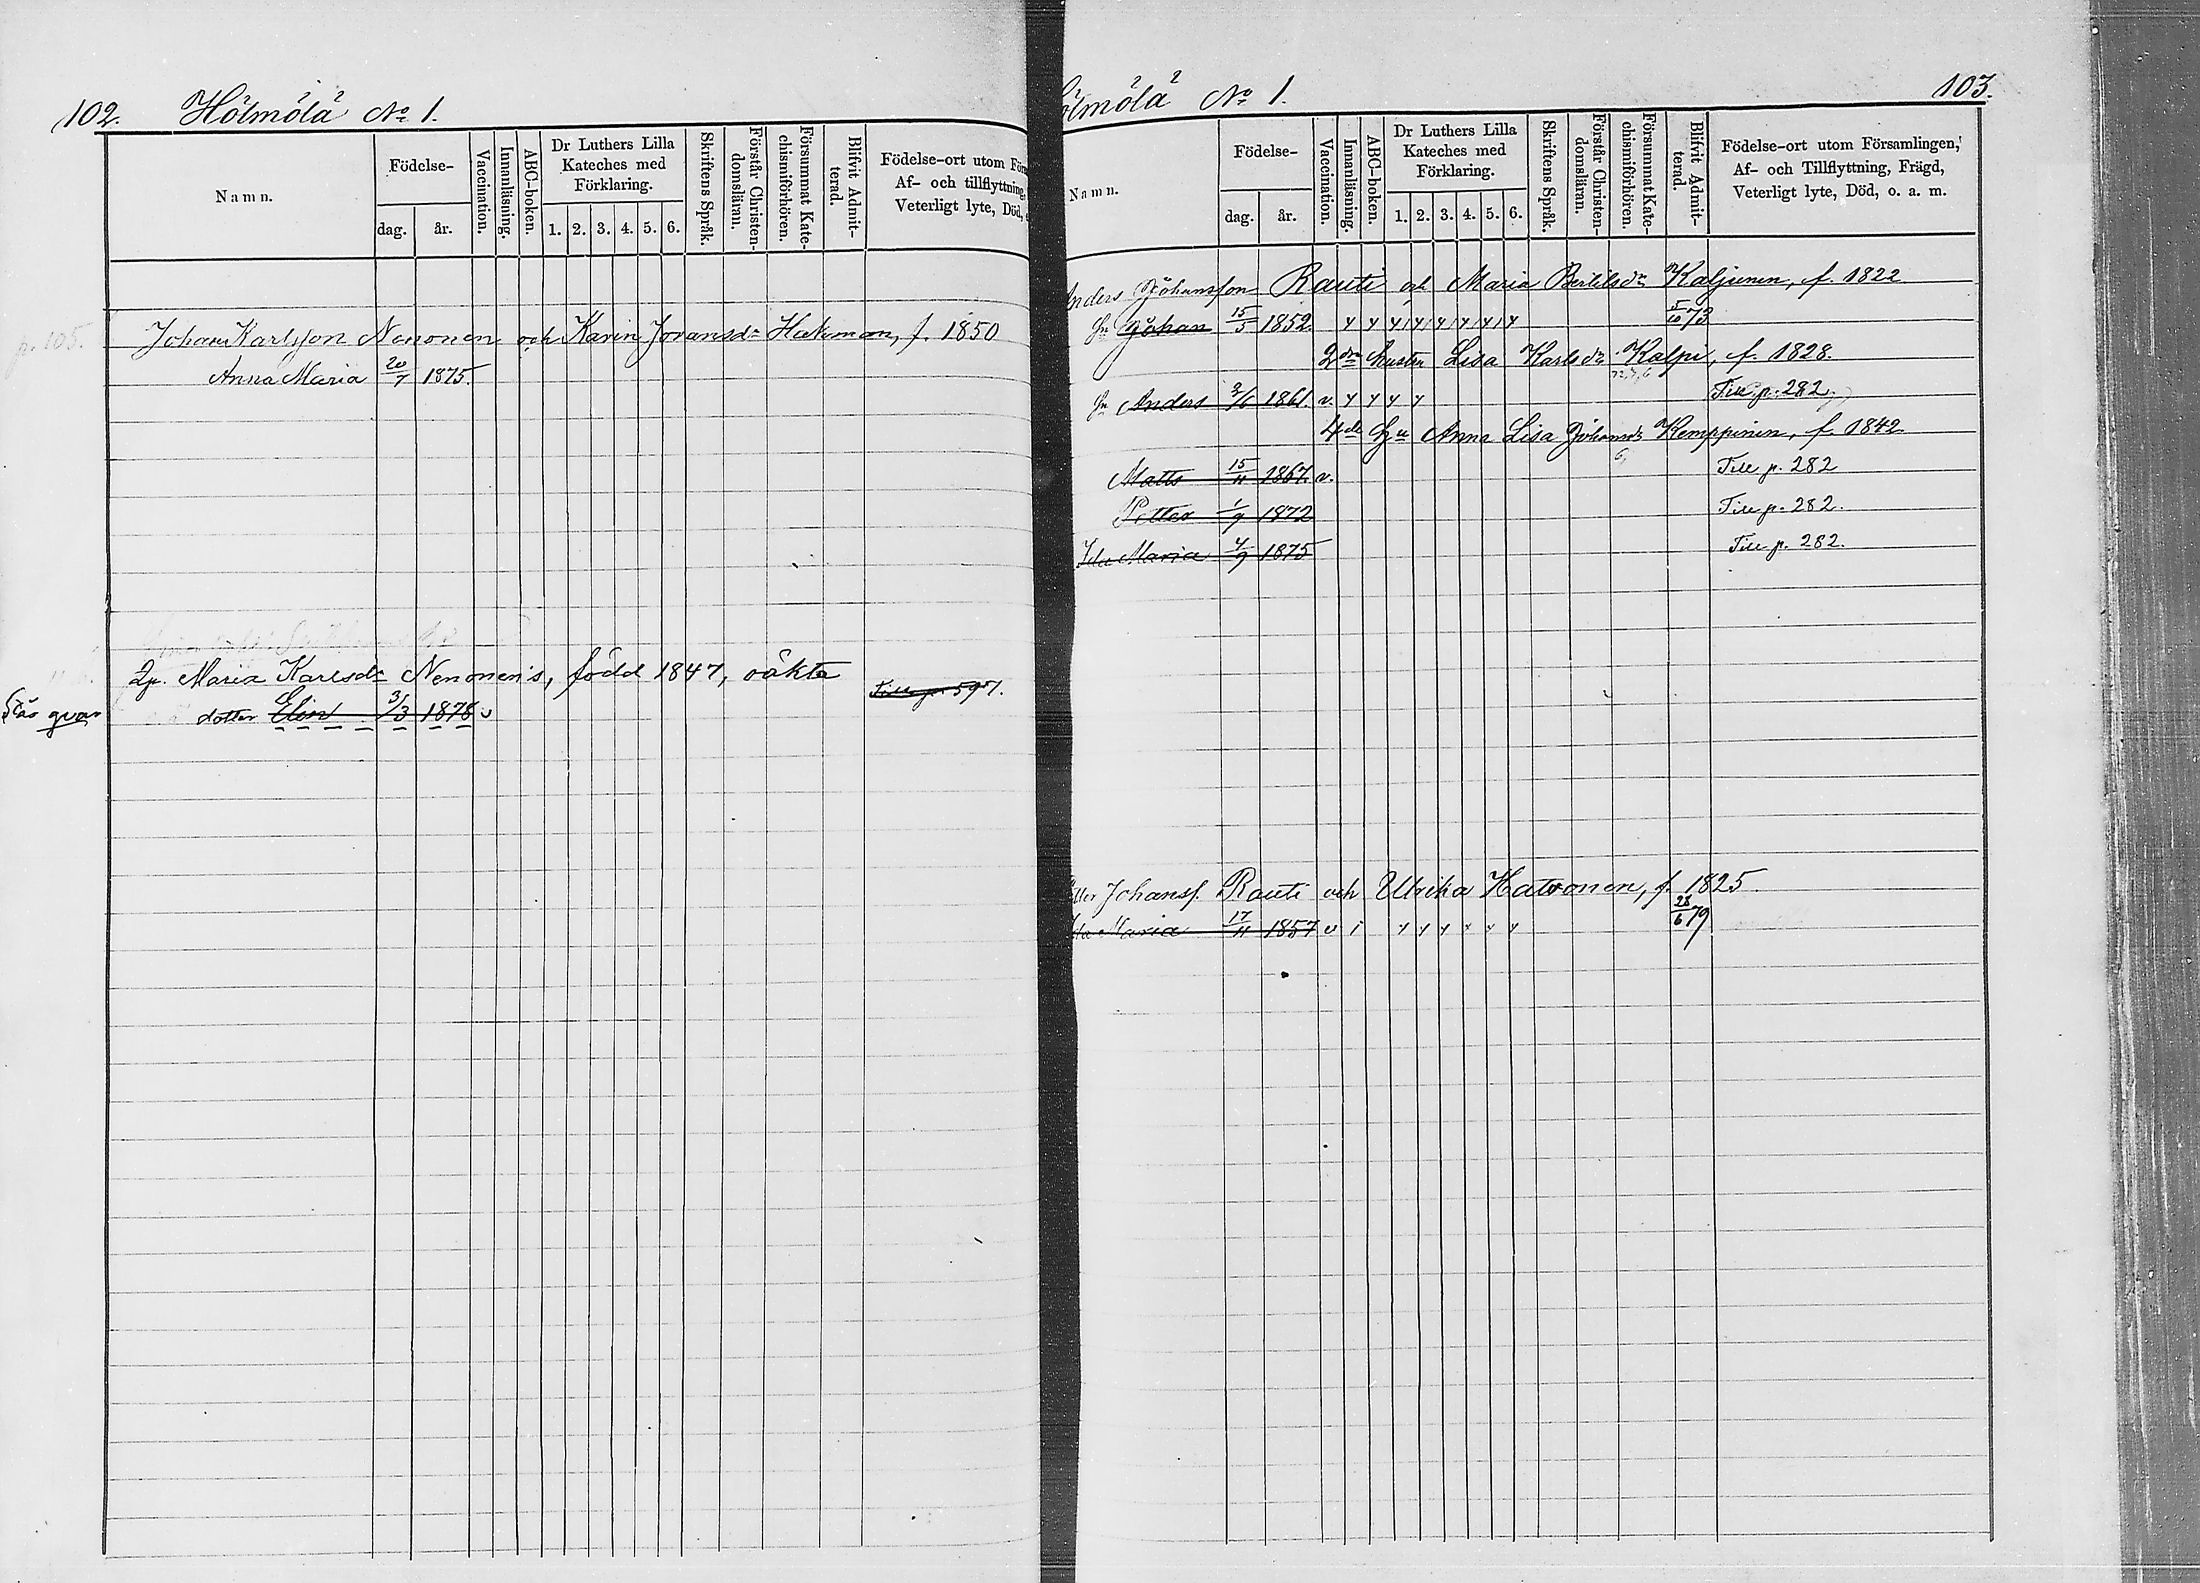 102. Hölmölä No 1.
Namn.
Födelse-
dag.
år.
Vaccination.
Innanläsning.
ABC-boken.
Dr Luthers Lilla
Kateches med
Förklaring.
1. 2. 3. 4. 5. 6.
Skriftens Språk.
Förstår Christen-
domsläran.
Försummat Kate-
chismiförhören.
Blifvit Admit-
terad.
Födelse-ort utom För
Af- och tillflyttning,
Veterligt lyte, Död,
p. 105. Johan Karlsson Nenonen och Karin Joransdr Hakman, f. 1850
Anna Maria 20/7 1875.
Qp. Maria Karlsdr Nenonen's, född 1847, oäkta
Till p. 597.
Står qvar dotter Elin 3/3 1878 v
ölmölä No 1. 103.
Namn.
Födelse-
dag.
år.
Vaccination.
Innanläsning.
ABC-boken.
Dr Luthers Lilla
Kateches med
Förklaring.
1. 2. 3. 4. 5. 6.
Skriftens Språk.
Förstår Christen-
domsläran.
Försummat Kate-
chismiförhören.
Blifvit Admit-
terad.
Födelse-ort utom Församlingen,
Af- och Tillflyttning, Frägd,
Veterligt lyte, Död, o. a. m.
Anders Johansson Rauti och Maria Bertilsdr Kaljunen, f. 1822
Sn Johan 15/5 1852 y y y y y y y y 5/10 73
2dra hustru Lisa Karlsdr Kalpi, f. 1828.
Sn Anders 3/6 1861. v. y y y y Till p. 282.
4de Hu Anna Lisa Johansdr Kemppinen, f. 1842
Matts 15/11 1867. v. Till p. 282
Petter 1/9 1872 Till p. 282.
Ida Maria 4/9 1875 Till p. 282.
tter Johanss. Rauti och Ulrika Hatvonen, f. 1825
da Maria 17/11 1857 v i y y y y y y 28/6 79